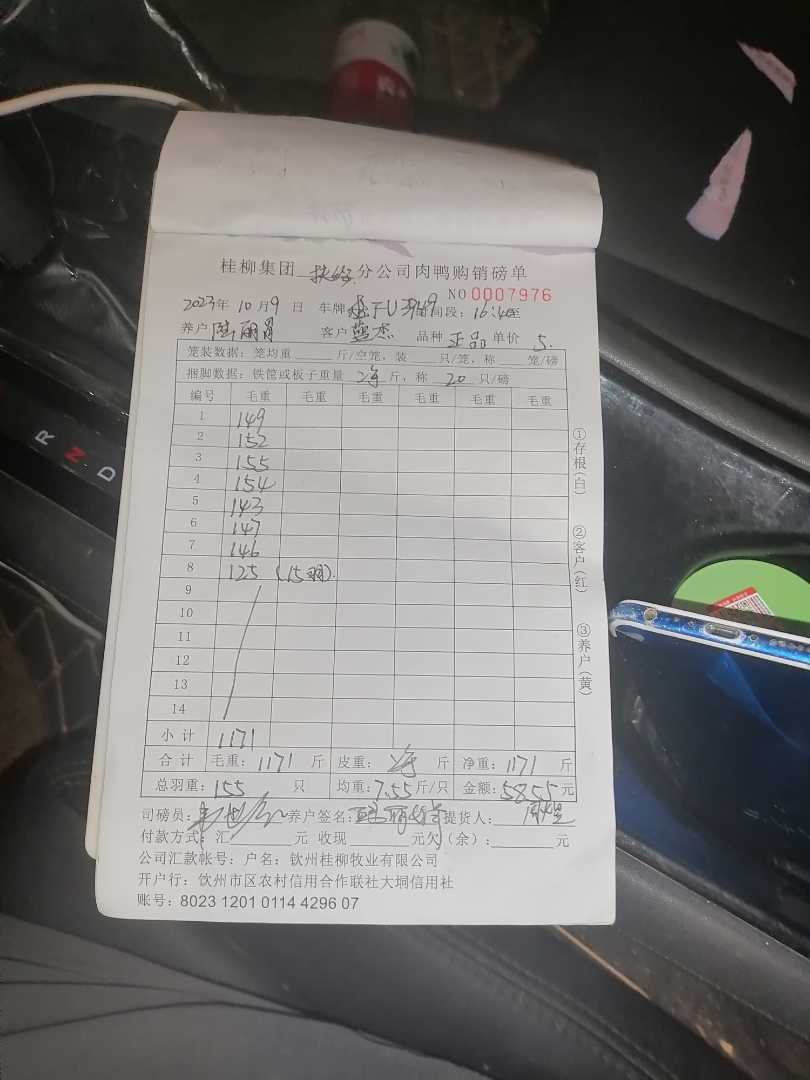 桂柳集团 分公司肉鸭购销磅单
NO 0007976
2023年 10月9日 车牌 时间段: 16:40至
养户 客户 蓝杰 品种 正品 单价 5.
笼装数据: 笼均重 斤/空笼, 装 只/笼, 称 笼/磅
捆脚数据: 铁筐或板子重量 净 斤, 称 20 只/磅
编号 毛重 毛重 毛重 毛重 毛重 毛重
1 149
2 152
3 155
4 154
5 143
6 147
7 146
8 125 (15羽).
9
10
11
12
13
14
小计 1171
合计 毛重: 1171 斤 皮重: 净 斤 净重: 1171 斤
总羽重: 155 只 均重: 7.55 斤/只 金额: 5855 元
司磅员: 养户签名: 提货人:
付款方式: 汇 元 收现 元欠(余): 元
公司汇款帐号: 户名: 钦州桂柳牧业有限公司
开户行: 钦州市区农村信用合作联社大垌信用社
账号: 8023 1201 0114 4296 07
①存根(白)
②客户(红)
③养户(黄)
R
N
D